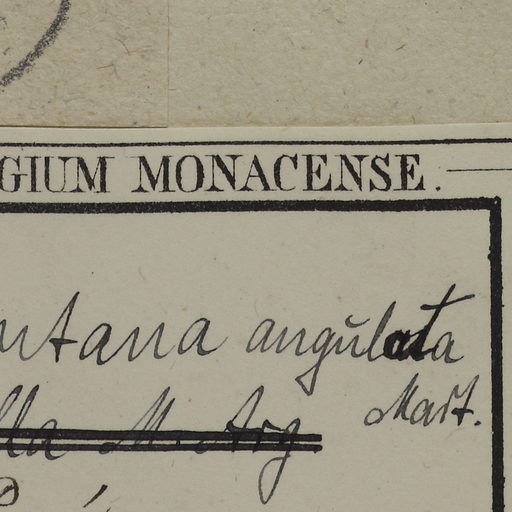 GIUM MONACENSE.
ntana angulata
Mart.
lla M. Arg.